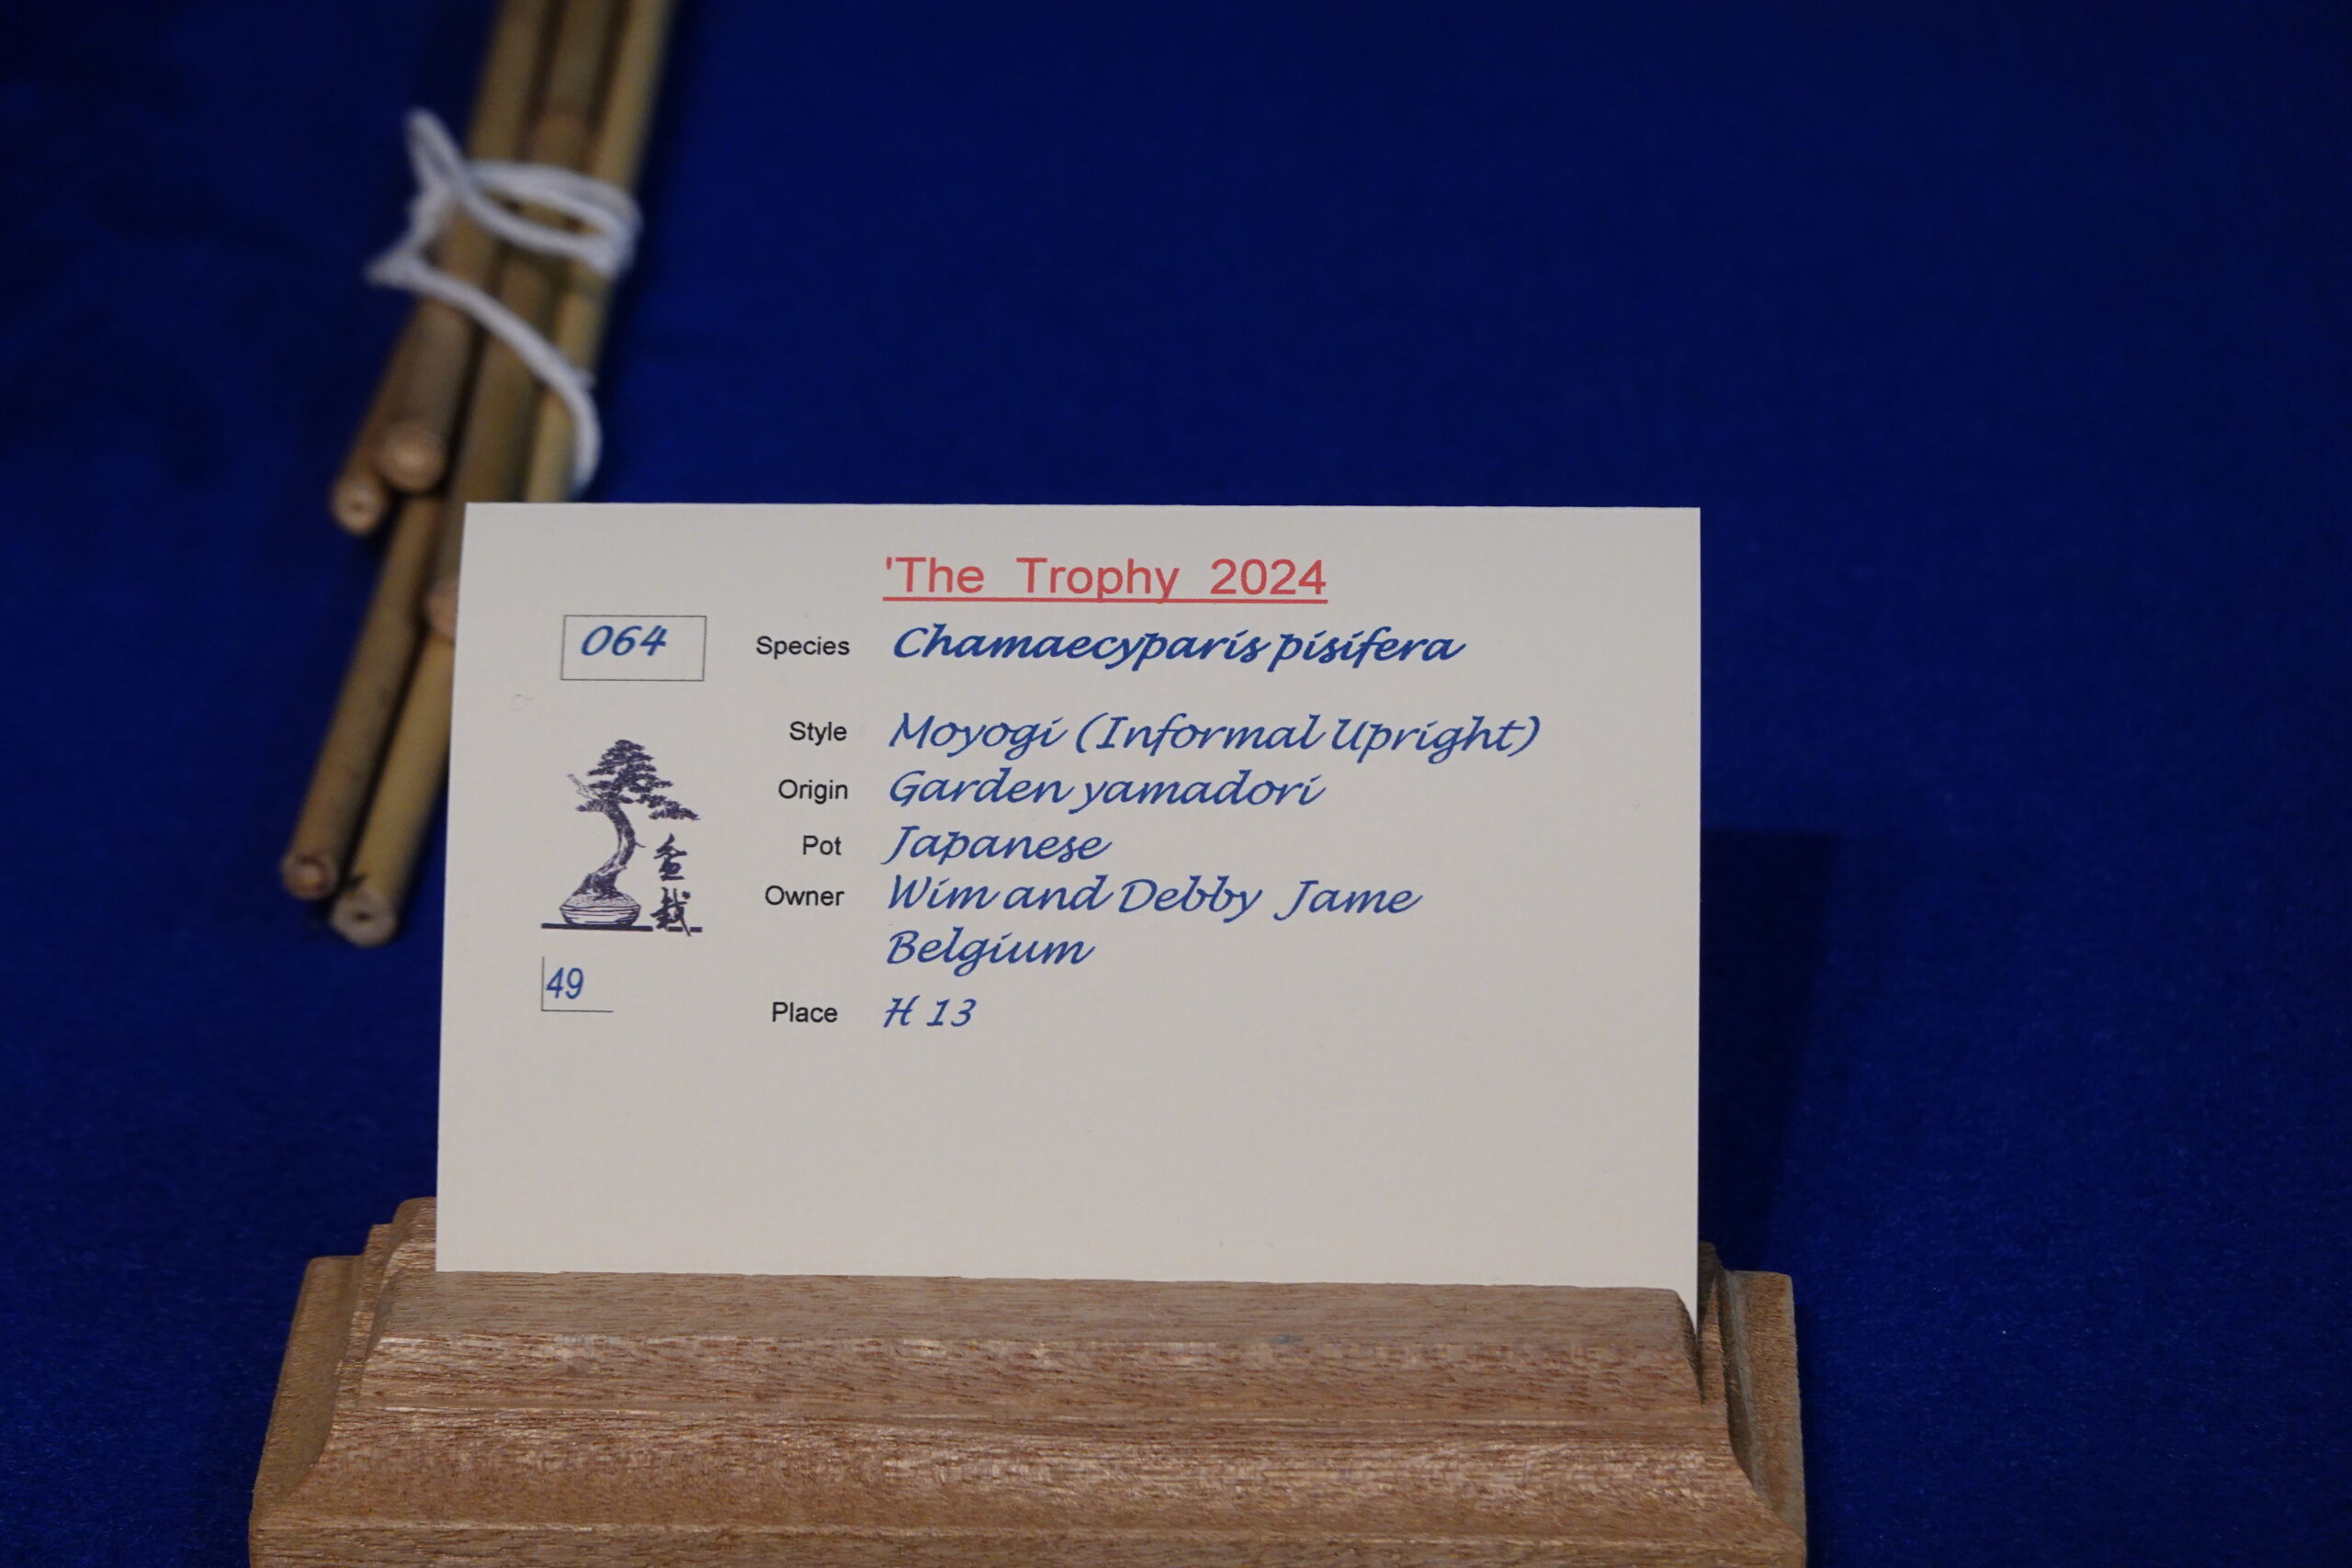 'The Trophy 2024
064 Species Chamaecyparis pisifera
Style Moyogi (Informal Upright)
Origin Garden yamadori
Pot Japanese
Owner Wim and Debby Jame
Belgium
盆栽
49
Place H 13